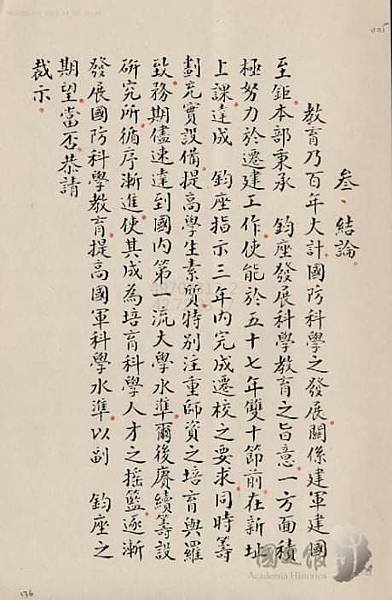 叁、結論
教育乃百年大計國防科學之發展關係建軍建國
至鉅本部秉承　鈞座發展科學教育之旨意一方面積
極努力於遷建工作使能於五十七年雙十節前在新址
上課達成　鈞座指示三年內完成遷校之要求同時籌
劃充實設備提高學生素質特別注重師資之培育與羅
致務期儘速達到國內第一流大學水準爾後賡續籌設
研究所循序漸進使其成為培育科學人才之搖籃逐漸
發展國防科學教育提高國軍科學水準以副　鈞座之
期望當否恭請
裁示
136
國史館
Academia Historica